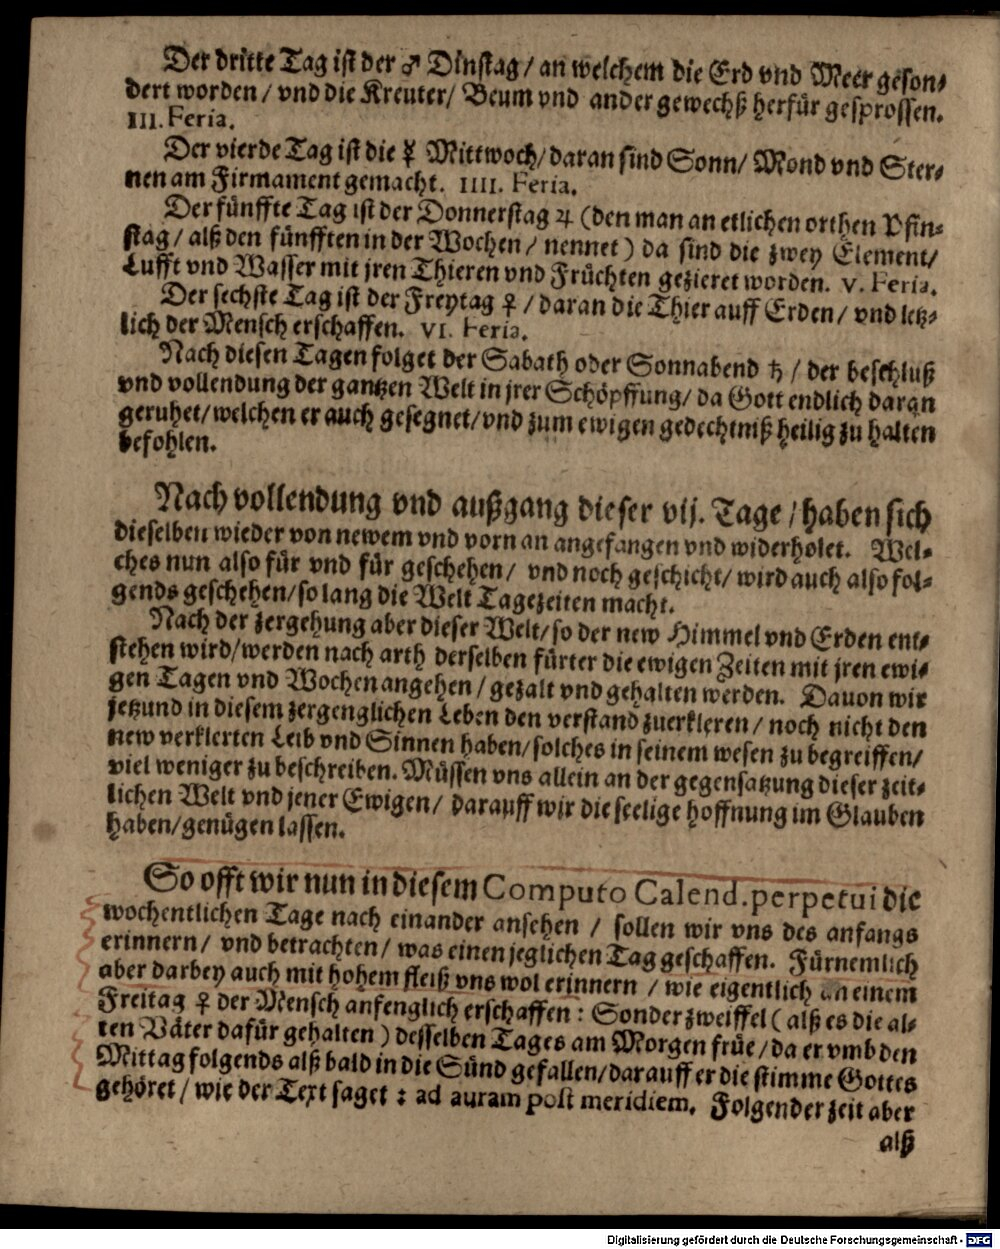 Der dritte Tag ist der ♂ Dinstag / an welchem die Erd vnd Meer geson⸗
dert worden / vnd die Kreuter / Beum vnd ander gewechß herfür gesprossen.
III. Feria.
Der vierde Tag ist die ☿ Mittwoch / daran sind Sonn / Mond vnd Ster⸗
nen am Firmament gemacht. IIII. Feria.
Der fünffte Tag ist der Donnerstag ♃ (den man an etlichen orthen Pfin⸗
stag / alß den fünfften in der Wochen / nennet) da sind die zwey Element /
Lufft vnd Wasser mit jren Thieren vnd Früchten gezieret worden. V. Feria.
Der sechste Tag ist der Freytag ♀ / daran die Thier auff Erden / vnd letz⸗
lich der Mensch erschaffen. VI. Feria.
Nach diesen Tagen folget der Sabath oder Sonnabend ♄ / der beschluß
vnd vollendung der gantzen Welt in jrer Schöpffung / da Gott endlich daran
geruhet / welchen er auch gesegnet / vnd zum ewigen gedechtniß heilig zu halten
befohlen.
Nach vollendung vnd außgang dieser vij. Tage / haben sich
dieselben wieder von newem vnd vorn an angefangen vnd widerholet. Wel⸗
ches nun also für vnd für geschehen / vnd noch geschicht / wird auch also fol⸗
gends geschehen / so lang die Welt Tagezeiten macht.
Nach der zergehung aber dieser Welt / so der new Himmel vnd Erden ent⸗
stehen wird / werden nach arth derselben fürter die ewigen Zeiten mit jren ewi⸗
gen Tagen vnd Wochen angehen / gezalt vnd gehalten werden. Dauon wir
jetzund in diesem zergenglichen Leben den verstand zuerkleren / noch nicht den
new verklerten Leib vnd Sinnen haben / solches in seinem wesen zu begreiffen /
viel weniger zu beschreiben. Müssen vns allein an der gegensatzung dieser zeit⸗
lichen Welt vnd jener Ewigen / darauff wir die seelige hoffnung im Glauben
haben / genügen lassen.
So offt wir nun in diesem Computo Calend. perpetui die
wochentlichen Tage nach einander ansehen / sollen wir vns des anfangs
erinnern / vnd betrachten / was einen jeglichen Tag geschaffen. Fürnemlich
aber darbey auch mit hohem fleiß vns wol erinnern / wie eigentlich an einem
Freitag ♀ der Mensch anfenglich erschaffen : Sonder zweiffel ( alß es die al⸗
ten Väter dafür gehalten ) desselben Tages am Morgen früe / da er vmb den
Mittag folgends alß bald in die Sünd gefallen / darauff er die stimme Gottes
gehöret / wie der Text saget : ad auram post meridiem. Folgender zeit aber
alß
Digitalisierung gefördert durch die Deutsche Forschungsgemeinschaft - DFG